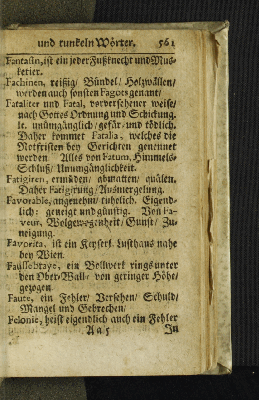 und tunckeln Wörter. 561
Fantaßin, ist ein jeder Fußknecht und Mus-
ketier.
Fachinen, reißig/ Bündel/ Holzwällen/
werden auch sonsten Fagots genant/
Fataliter und Fatal, vorversehener weise/
nach Gottes Ordnung und Schickung.
It. unümgänglich/ gefär- und tödlich.
Daher kommet Fatalia, welches die
Notfristen bey Gerichten genennet
werden. Alles von Fatum, Himmels-
Schluß/ Unümgänglichkeit.
Fatigiren, ermüden/ abmatten/ quälen.
Daher Fatigirung/ Ausmergelung.
Favorable, angenehm/ tuhelich. Eigend-
lich: geneigt und günstig. Von Fa-
veur, Wolgewogenheit/ Gunst/ Zu-
neigung.
Favorita, ist ein Keyserl. Lusthaus nahe
bey Wien.
Faussebraye, ein Bollwerk rings unter
den Ober-Wall/ von geringer Höhe/
gezogen.
Faute, ein Fehler/ Versehen/ Schuld/
Mangel und Gebrechen/
Felonie, heist eigendlich auch ein Fehler
Aa 5 In